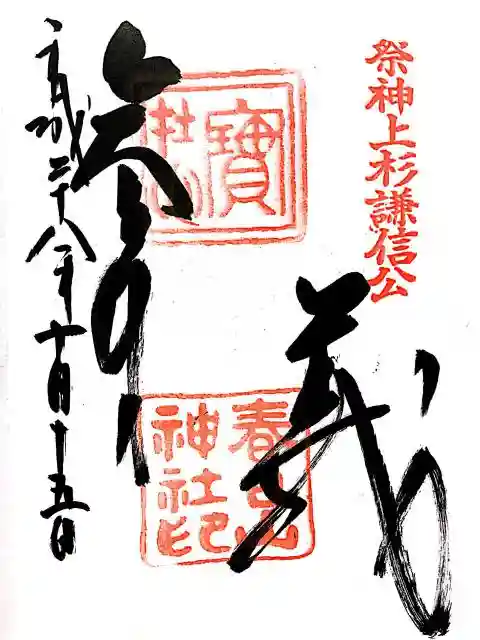 祭神上杉謙信公
義
参拝
春日山
神社印
平成二十八年十月十五日